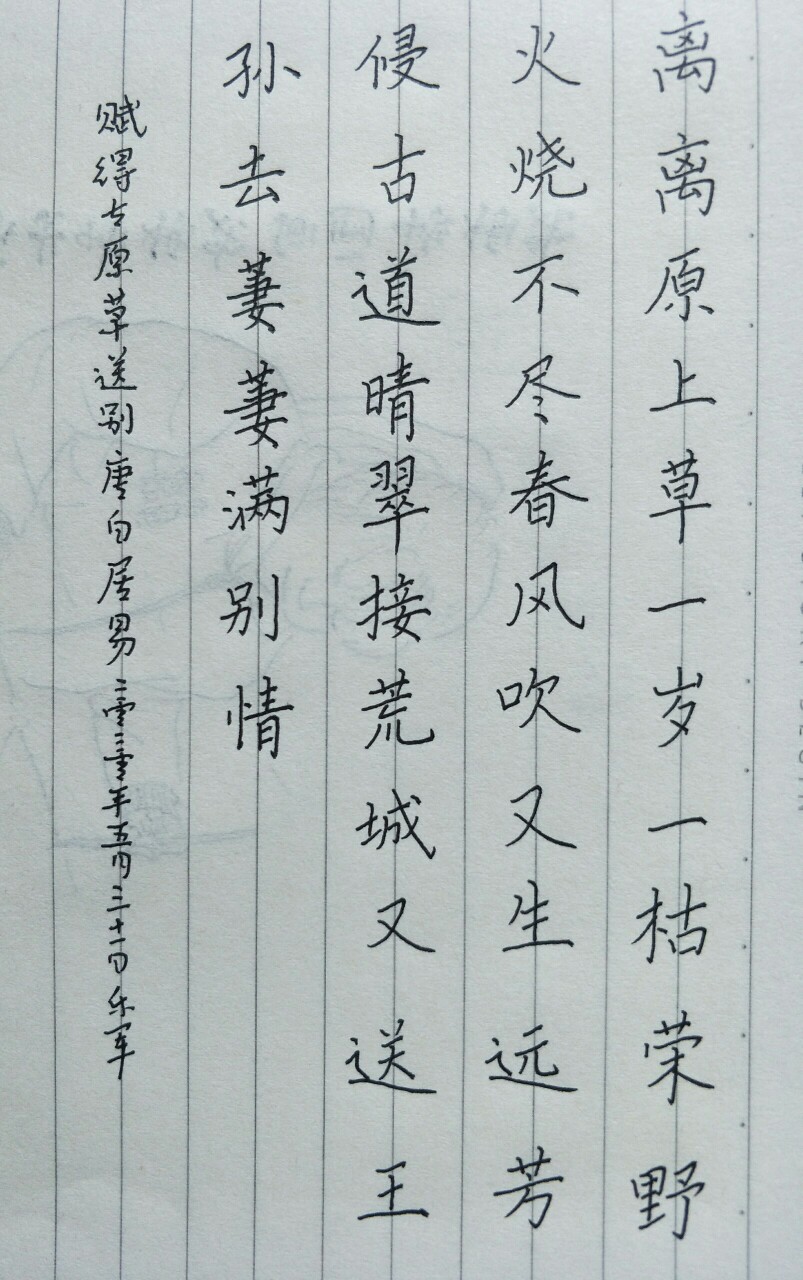 离离原上草一岁一枯荣野
火烧不尽春风吹又生远芳
侵古道晴翠接荒城又送王
孙去萋萋满别情
赋得古原草送别唐白居易二零二零年五月三十一日乐军